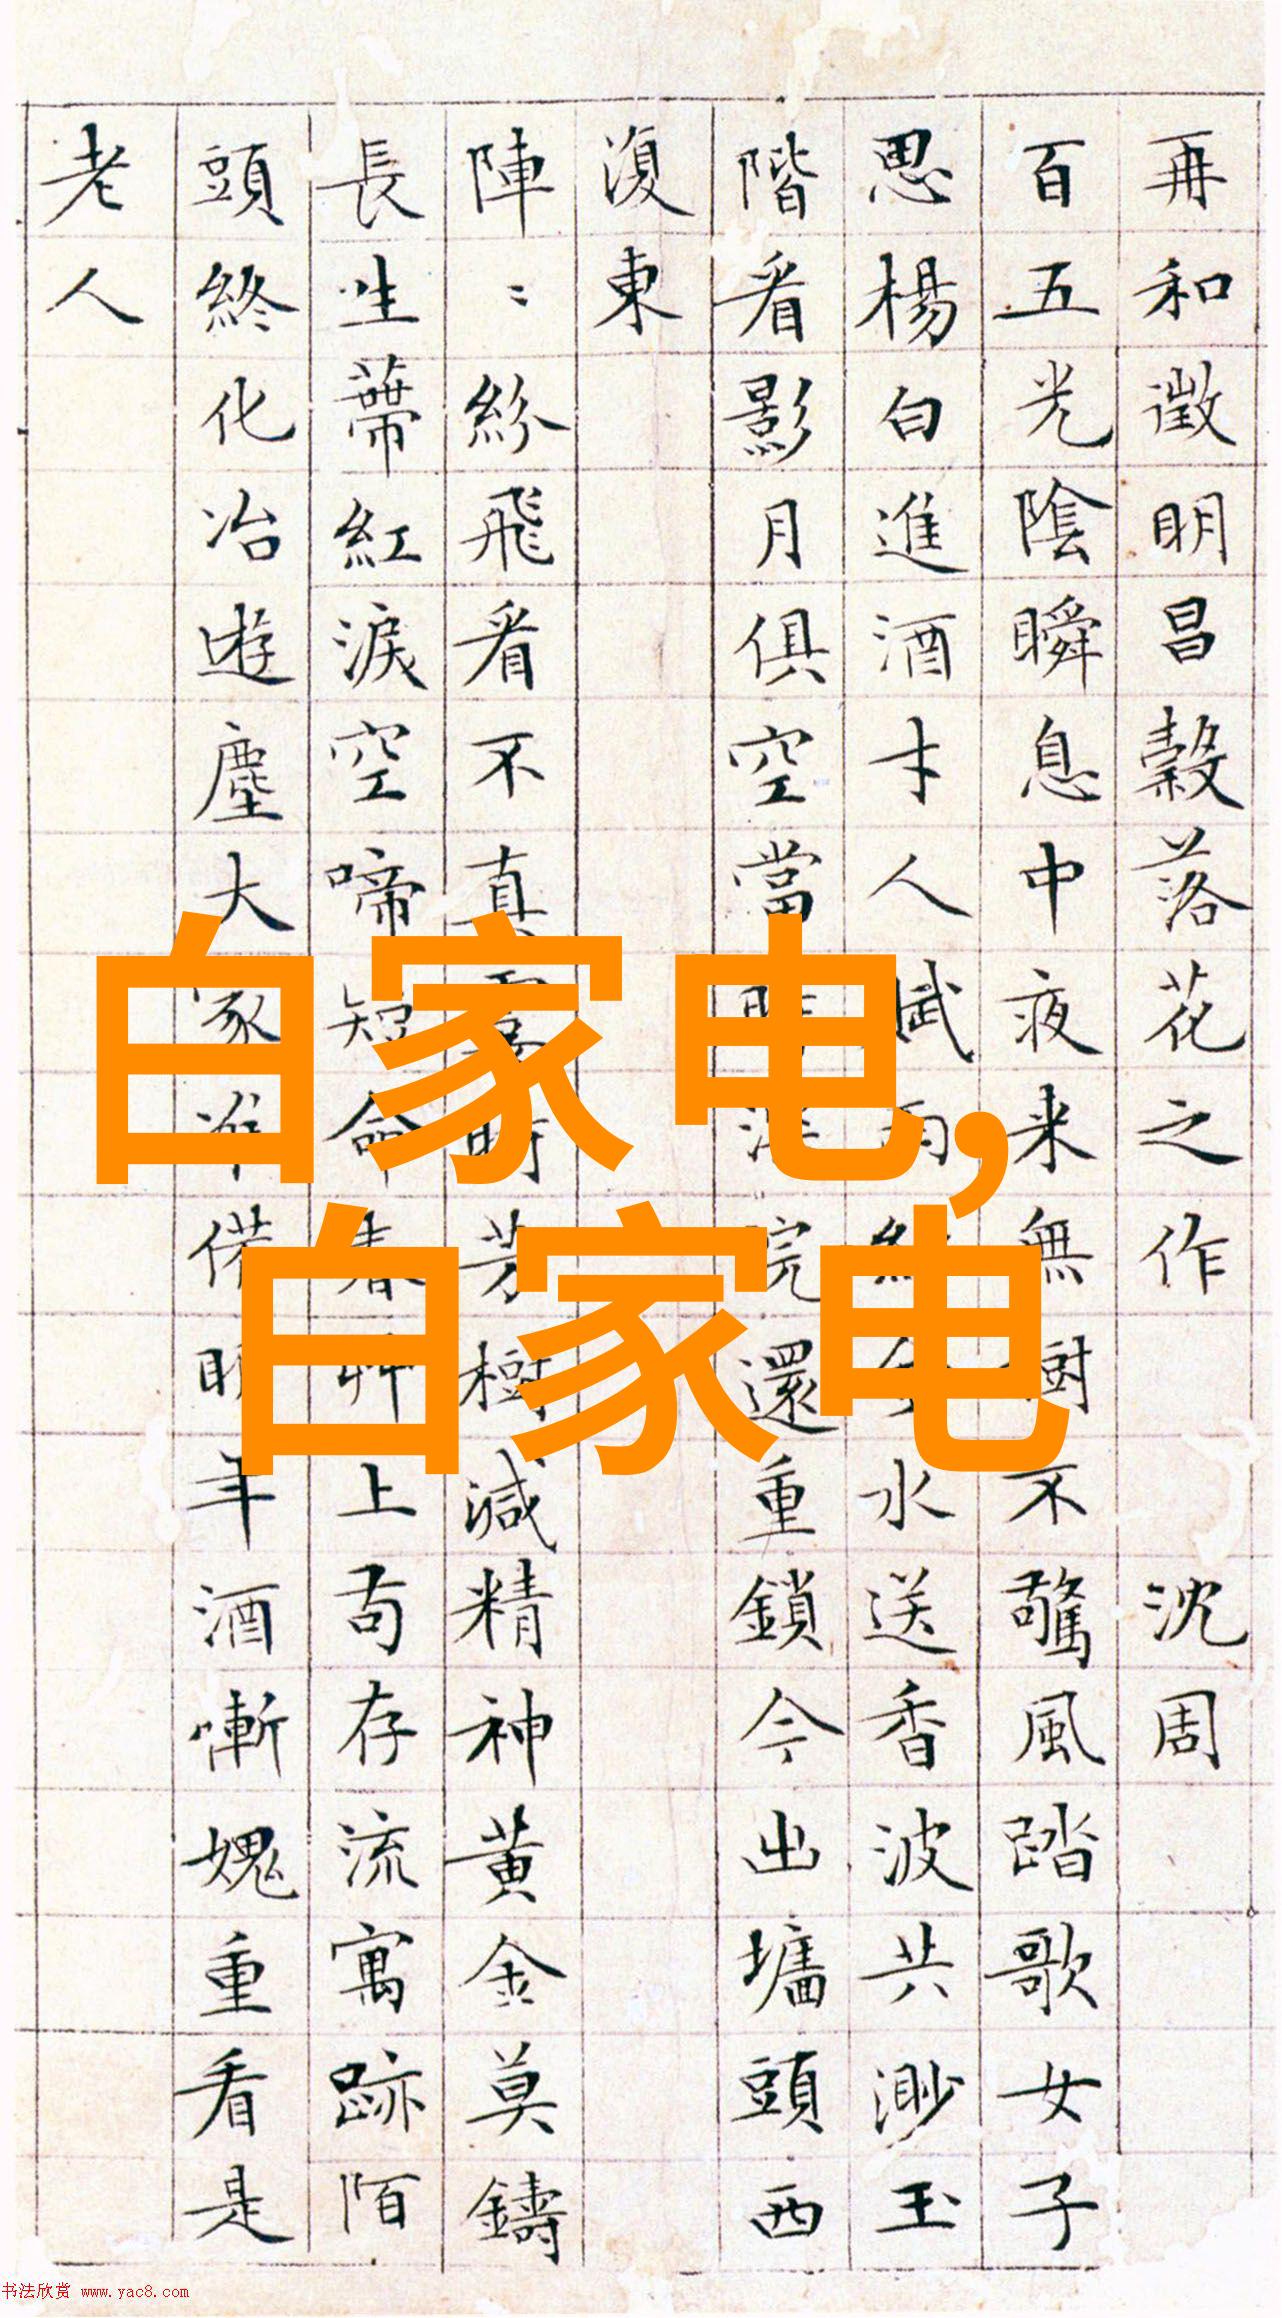 再和徵明昌穀落花之作 沈周
百五光陰瞬息中夜来無樹不驚風踏歌女子
思楊白進酒才人賦雨水送香波共渺玉
階看影月俱空當時深院還重鎖今出墻頭西
復東
陣〻紛飛看不真霎時芳樹減精神黃金莫鑄
長生蔕紅淚空啼短命春艸上苟存流寓跡陌
頭終化冶遊塵大家准備明年酒慚愧重看是
老人
白家电,
白家电
书法欣赏 www.yac8.com